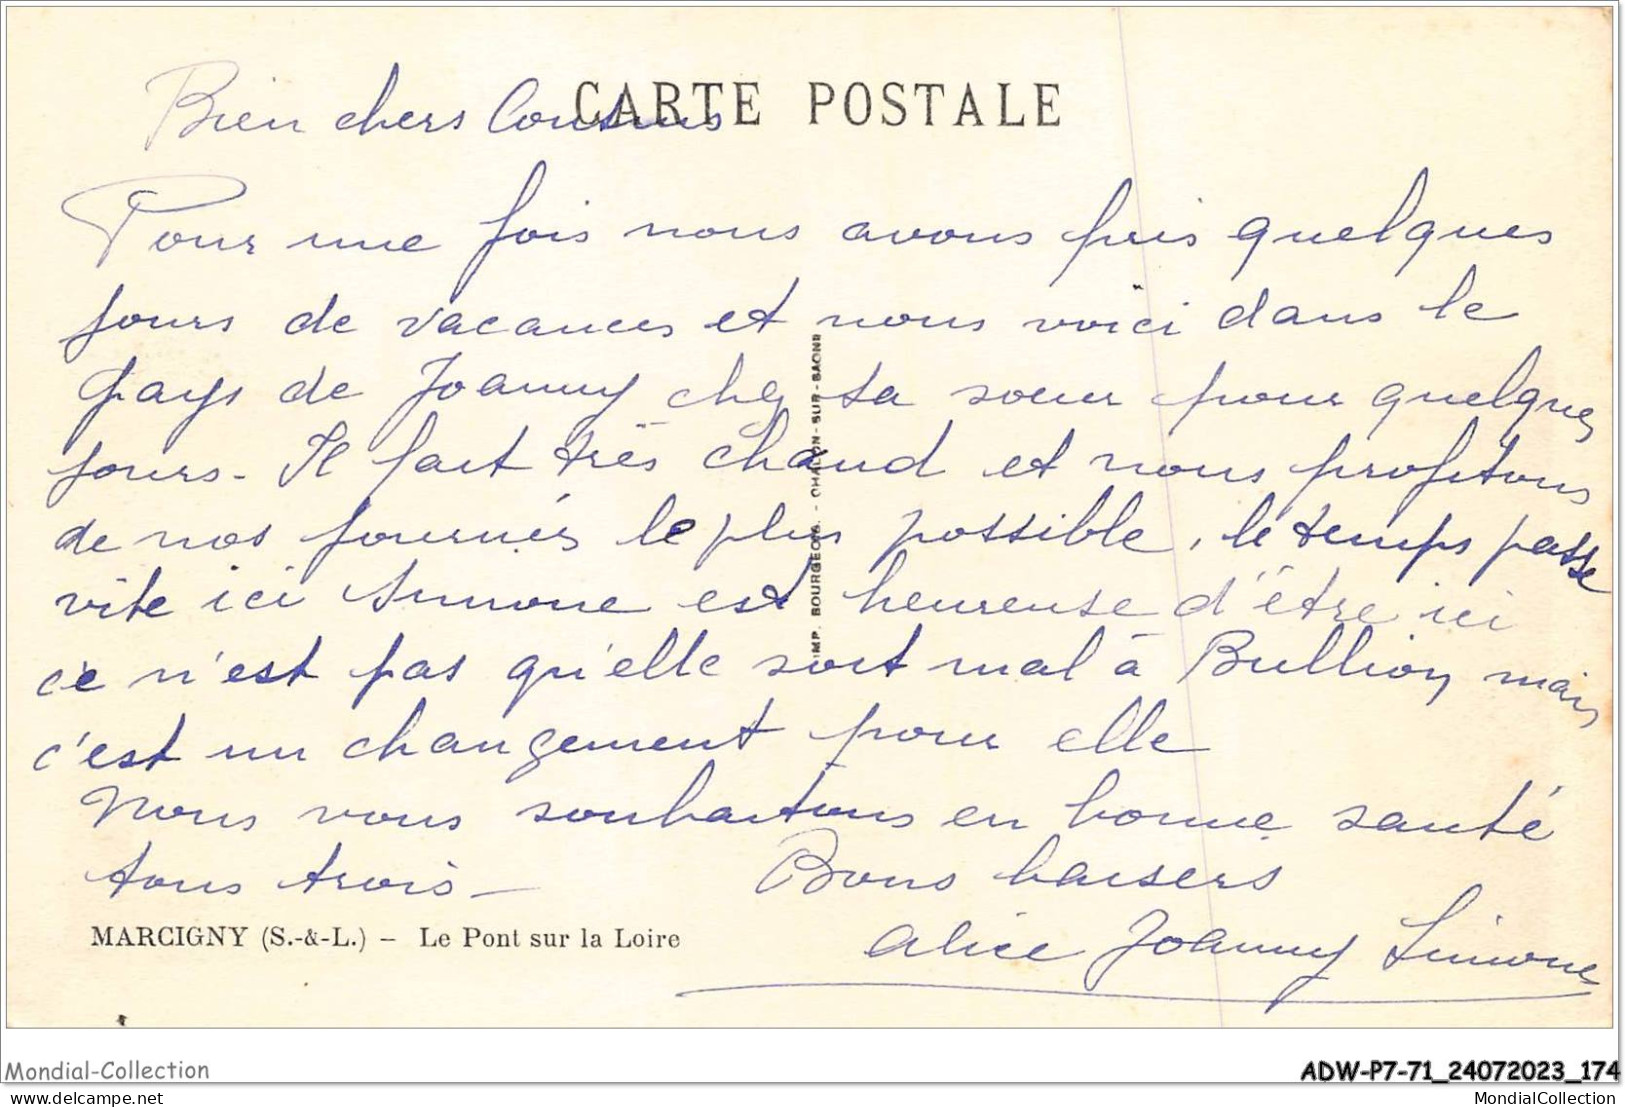 CARTE POSTALE
Bien chers Cousins
Pour une fois nous avons pris quelques
jours de vacances et nous voici dans le
pays de Joanny chez sa soeur pour quelques
jours - Il fait très chaud et nous profitons
de nos journés le plus possible, le temps passe
vite ici Simone est heureuse d'être ici
ce n'est pas qu'elle soit mal à Bullion mais
c'est un changement pour elle
Nous vous souhaitons en bonne santé
tous trois -
Bons baisers
Alice Joanny Simone
MARCIGNY (S.-&-L.) - Le Pont sur la Loire
IMP. BOURGEOIS. - CHALON-SUR-SAONE
Mondial-Collection
ADW-P7-71_24072023_174
delcampe.net
MondialCollection